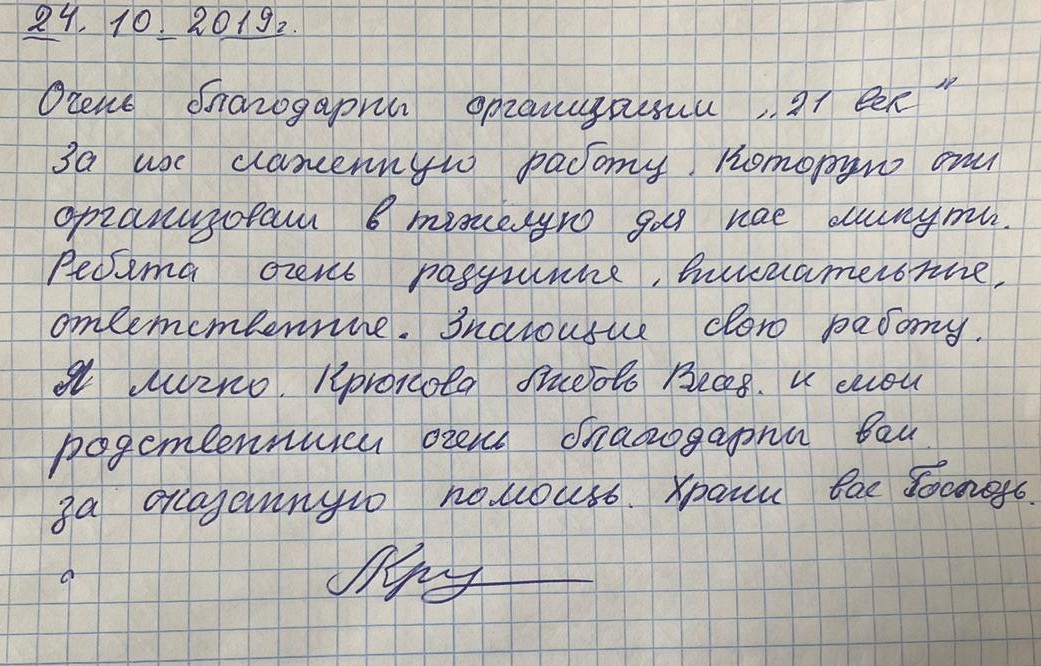 24. 10. 2019г.
Очень благодарны организации „21 век"
За их слаженную работу. Которую они
организовали в тяжёлую для нас минуты.
Ребята очень разумные, внимательные,
ответственные. Знающие свою работу.
Я лично. Крюкова Любовь Влад. и мои
родственники очень благодарны вам
за оказанную помощь. Храни вас Господь.